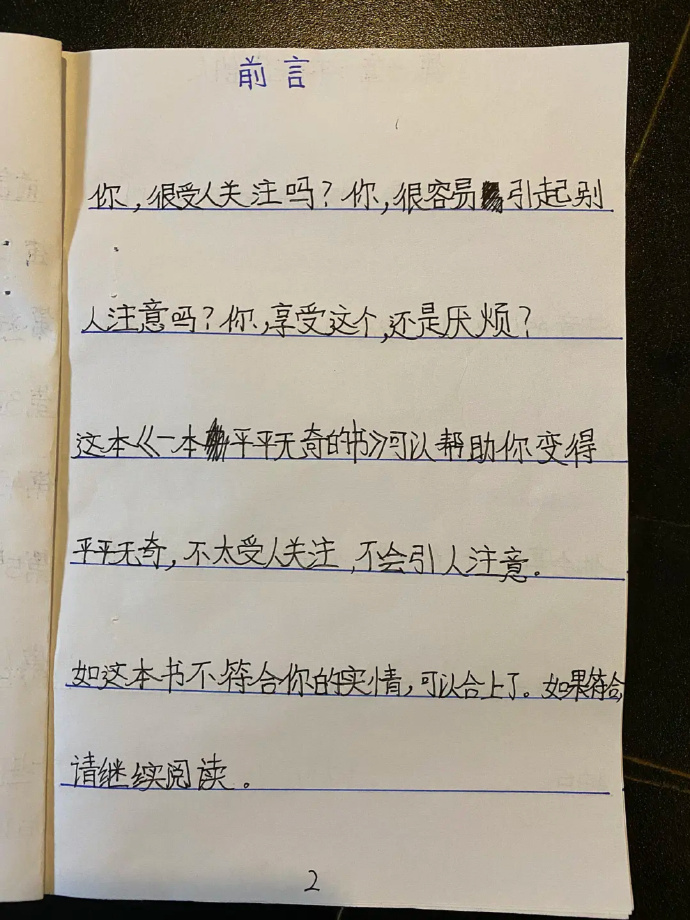 前言
你，很受人关注吗？你，很容易引起别
人注意吗？你，享受这个，还是厌烦？
这本《一本平平无奇的书》可以帮助你变得
平平无奇，不太受人关注，不会引人注意。
如这本书不符合你的实情，可以合上了。如果符合，
请继续阅读。
2